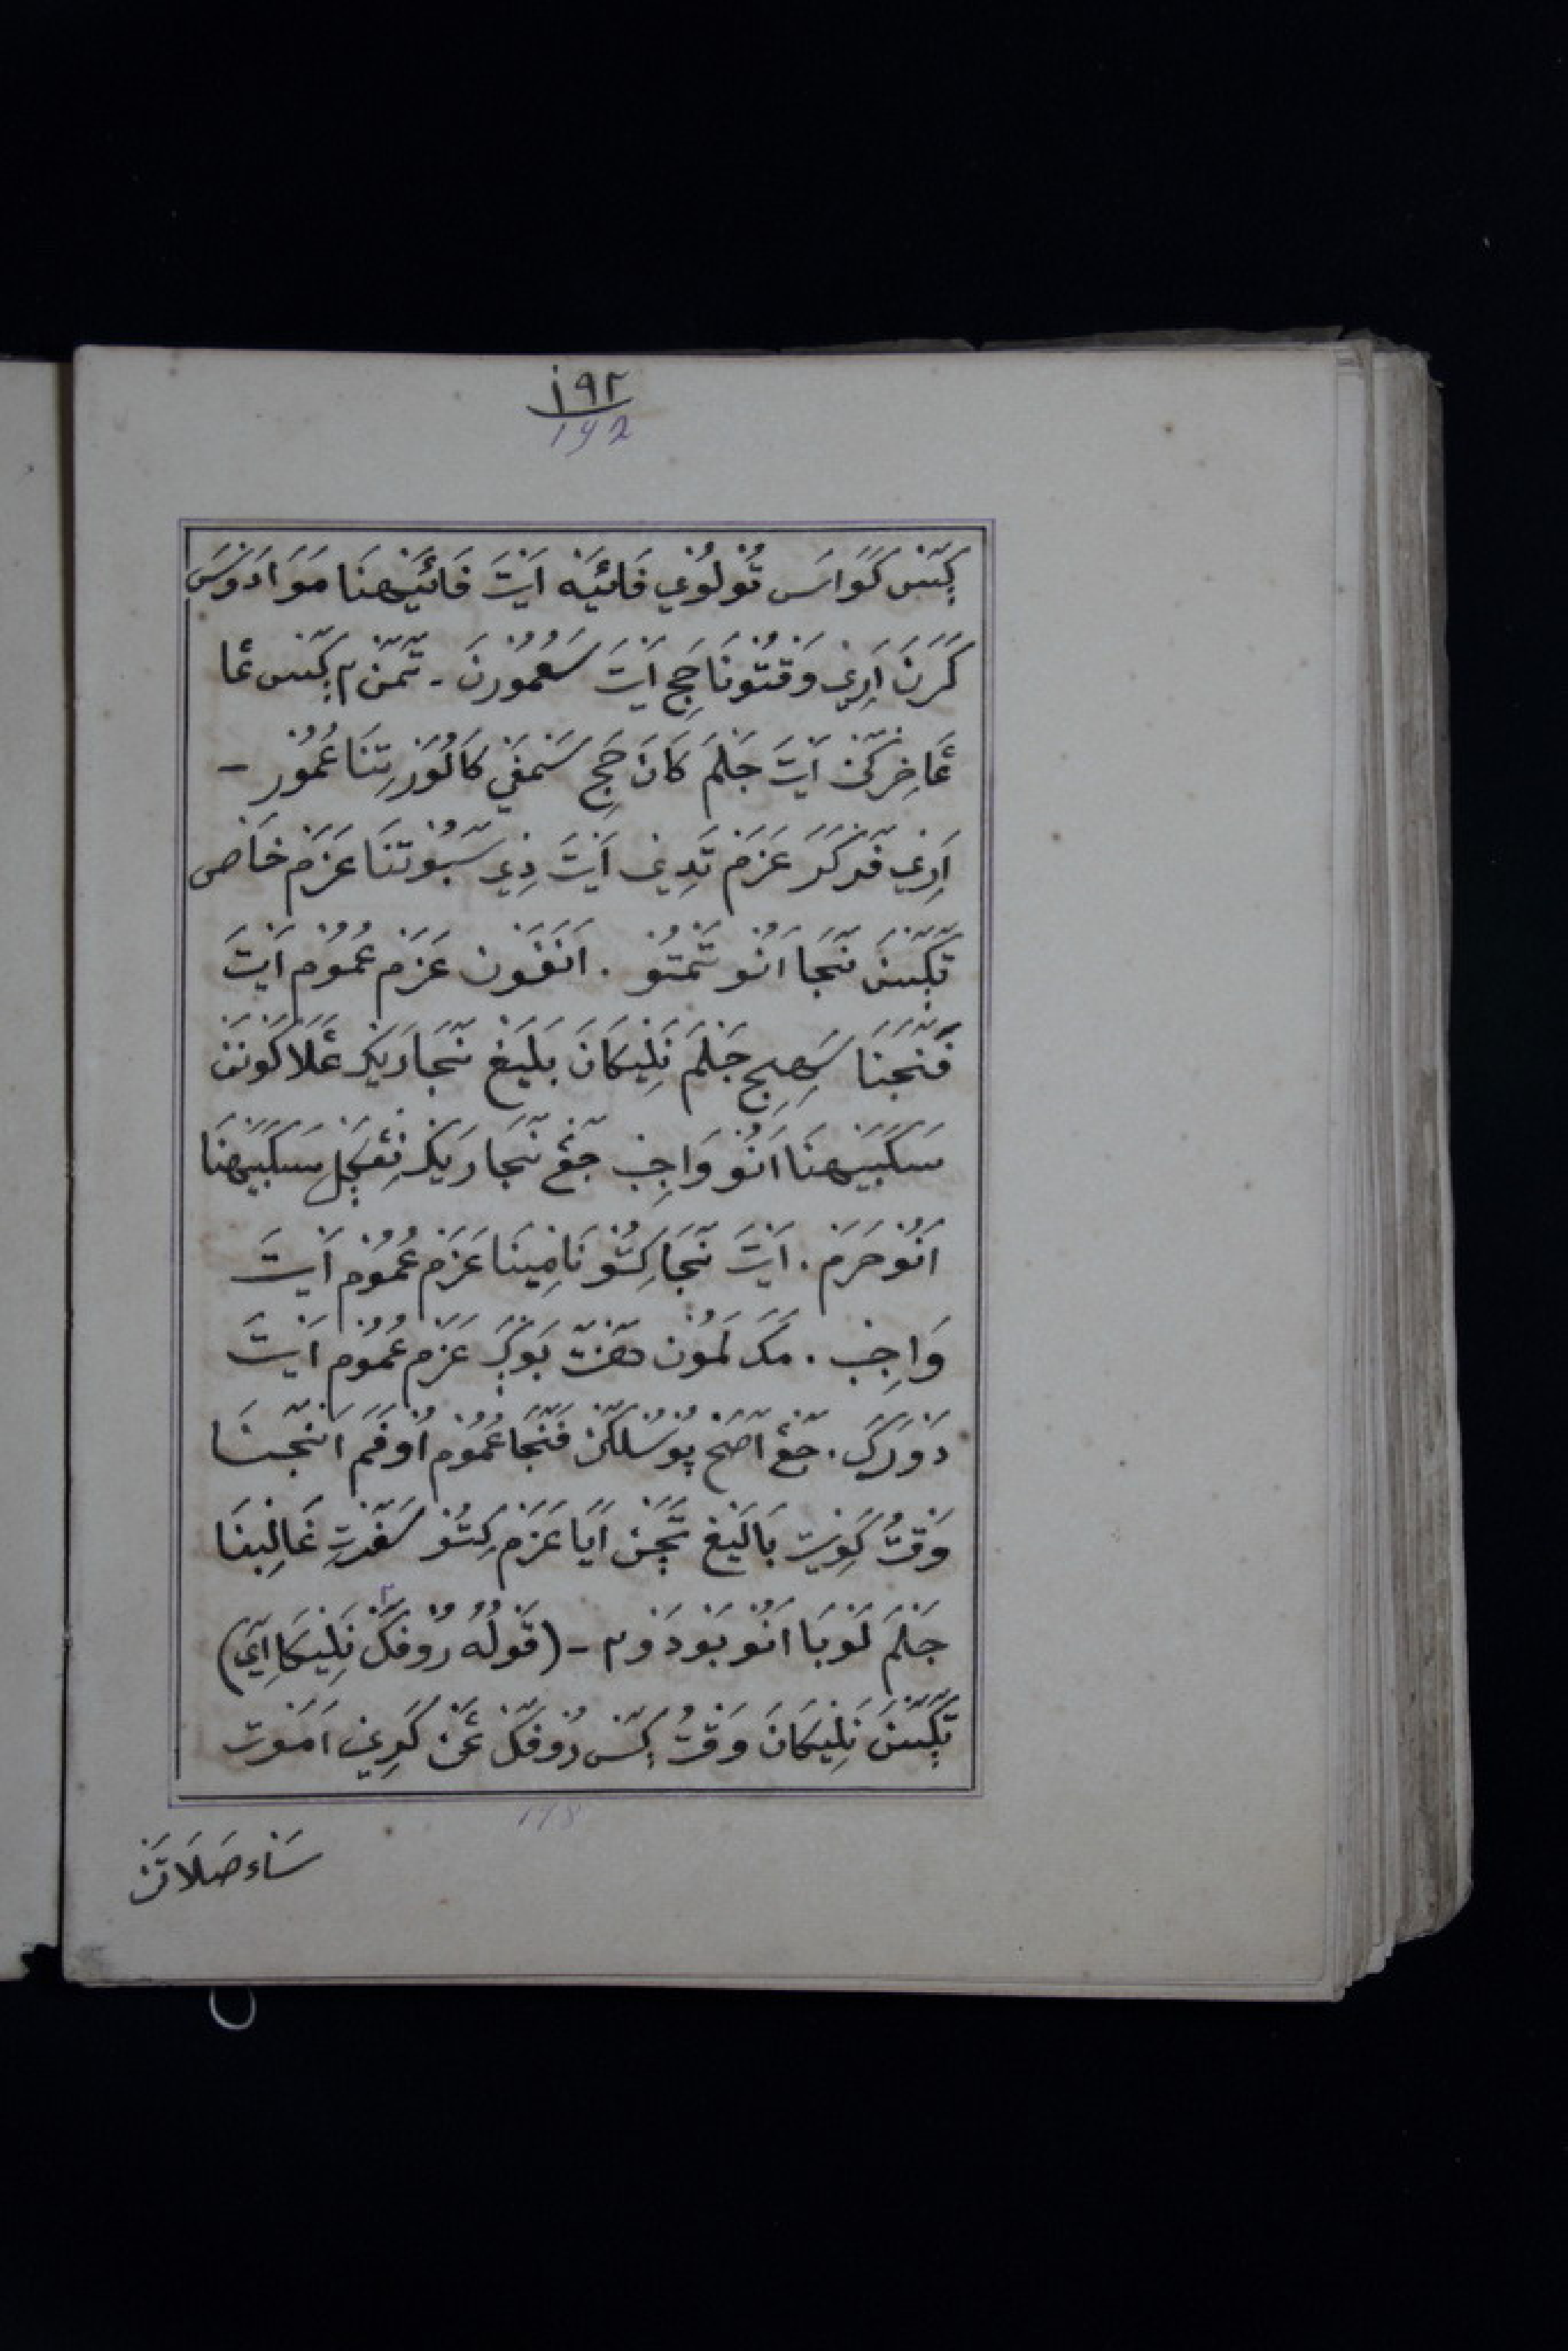 ١٩٢
192
كٟسّنْ كَوَاسَ تُوْلُوْڠِي فَائيَهْ اَيْتَ فَائيَيْهنَا مَوَادَوْسَ
كَرَنَ اَرِيْ وَقْتُوْنَا حَجِ اَيْتَ سَعُمُوْرَنَ - تَمّنْ م كٟسّنْ عَا
عَاخِركّنْ اَيْتَ جَلْمَ كَانَ حَجِ سَنمفَيْ كَالُوَرْ تِتنَا عُمُوْر -
اَرِيْ فَركَرَ عَزَمْ تَدِيْ اَيْتَ ذِيْ سّبُوْتنَا عَزَمْ خَاصْ
تٟكّسّنَ نّجَا اَنُوْ تّمْتُوْ . اَنَفَوْن عَزَمْ عُمُوْم اَيْتَ
فّنّجنَا سَهِجِ جَلْمَ نَلِيْكَانَ بَلَيْغ نّجَارَيْكَ عَلَاكَوْنَنْ
سَكَبَيْهنَا اَنُوْ وَاجِبْ جّڠْ نّجَا رَيْكَ نِڠْكٟل سَكَبَيْهنَا
اَنُوْ حَرَمْ . اَيْتَ نّجَا كِتُوْ نَامِيْنَا عَزَمْ عُمُوْم اَيْتَ
وَاجِبْ . مَكَ لَمُوْن هَنتّ بَوْكٟ عَزَمْ عُمُوْم اَيْتَ
دَوْرَكَ . جّڠْ اَصَحْ ڽُوْسُلكّنْ فَنّجَا عُمُوْم اُوْفَمَ اَنّجنَا
وَقْتُ كَوْيَ بَالَيْغ تّجٟنْ اَيَا عَزَمْ كِتُوْ سَفَرْتِ غَالِبنَا
جَلْمَ لَوْبَا اَنُوْ بَوْدَوْم - (قَوْلُهُ رُوْفكّ ٢ نَلِيْكَا اَيَ)
تٟكّسّنَ نَلِيْكَانَ وَقْتُ كٟسّنْ رُوْفكّ عَنْ كَرِيْ اَمَوْت
198
سَاء صَلَاتَنْ